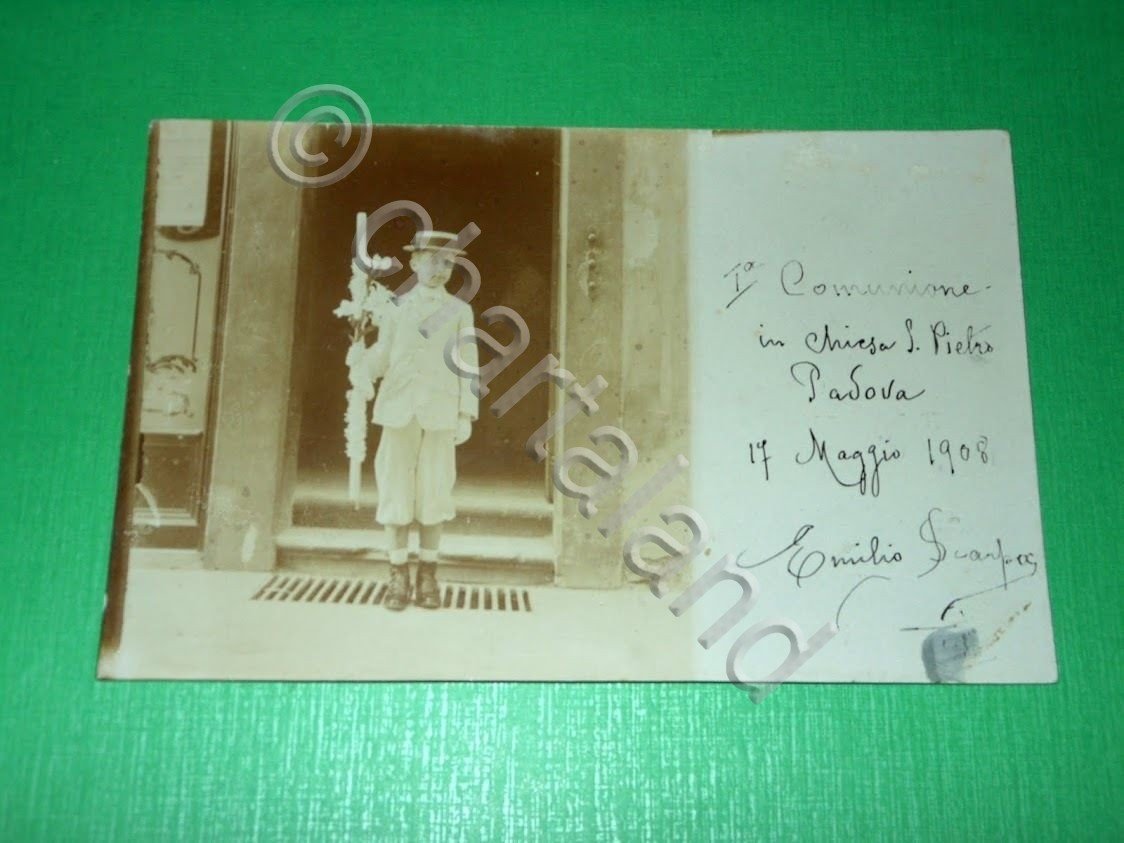 © chartaland
Iª Comunione
in chiesa S. Pietro
Padova
17 Maggio 1908
Emilio